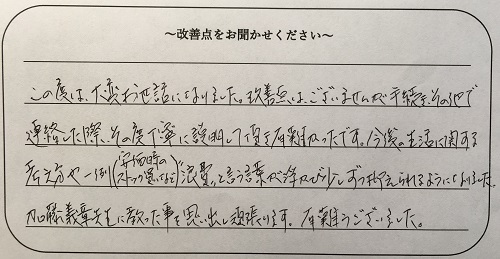 ～改善点をお聞かせください～
この度は、大変お世話になりました。改善点は、ございませんが手続き、その他で
連絡した際、その度丁寧に説明して頂き有難かったです。今後の生活に関する
考え方や一例(安価時のストック買いなど)"浪費"と言う言葉が浮かび少しずつ抑えられるようになりました。
加藤義章先生に教った事を思い出し頑張ります。有難うございました。